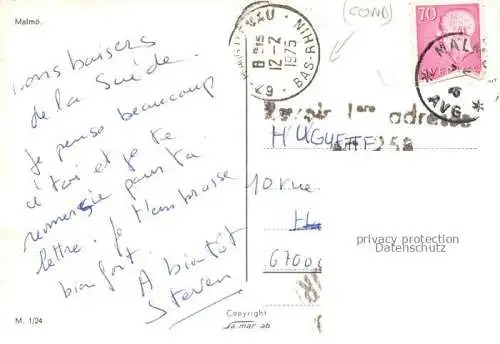 Malmö.
bons baisers
de la Suède.
Je pense beaucoup
à toi et je te
remercie pour ta
lettre. Je t'embrasse
bien fort.
A bientôt
Steven
M. 1/24
Copyright
fa-mar-ab
(COND)
8H15
12-2
1975
BAS-RHIN
70
MALM
AVG
1ère adresse
HUGUETTE
10 rue
67000
privacy protection
Datenschutz